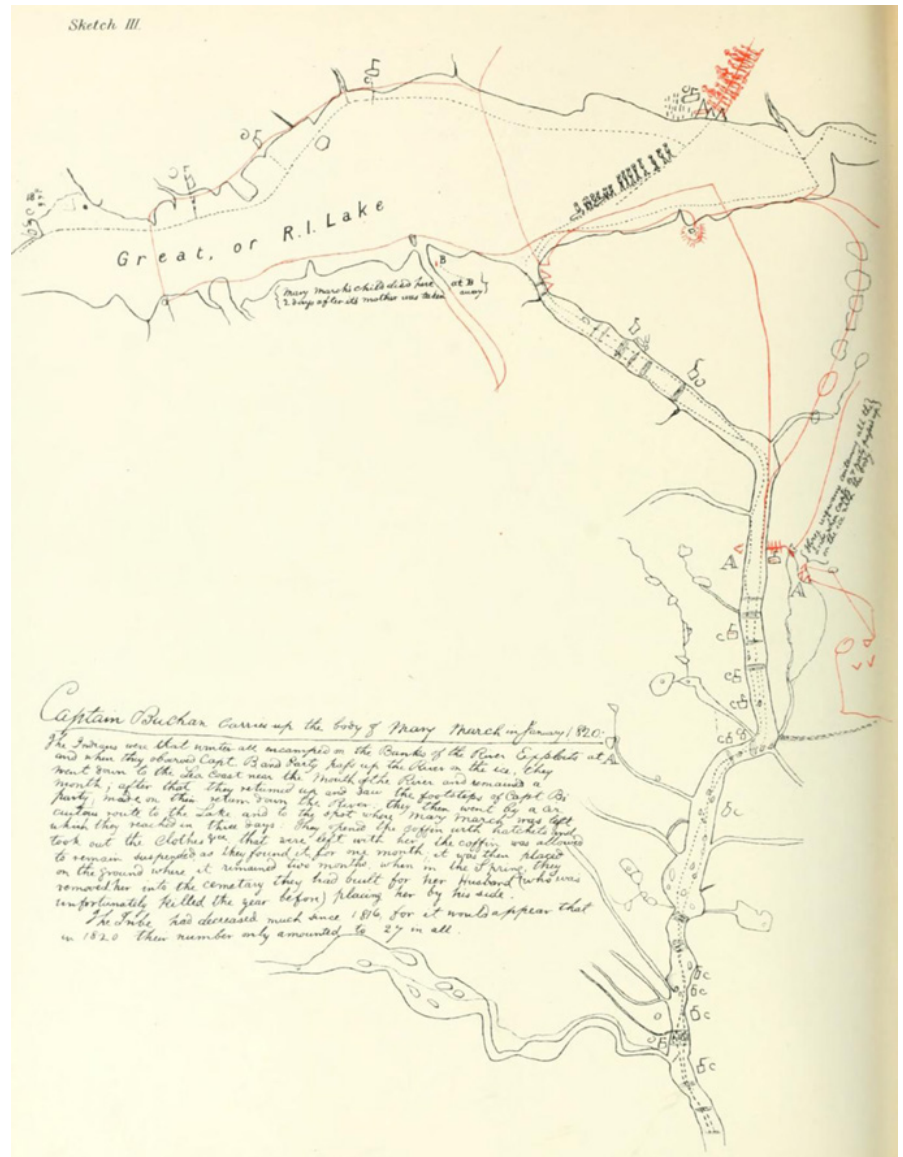 Sketch III.
Great, or R.I. Lake
B
{ Mary March's child died here at B }
{ 2 days after its mother was taken away }
A
A
Three wigwams containing all the
Tribe when Capt. B's party passed up
on the ice with the body
Captain Buchan carries up the body of Mary March in January 1820.
The Indians were that winter all encamped on the Banks of the River Exploits at A
and when they observed Capt B and Party pass up the River on the ice, they
went down to the Sea Coast near the Mouth of the River and remained a
month; after that they returned up and saw the footsteps of Capt B's
party, made on their return down the River. they then went by a cir
cuitous route to the Lake and to the spot where Mary March was left
which they reached in three days. They opened the coffin with hatchets and
took out the Clothes &c that were left with her. the coffin was allowed
to remain suspended as they found it for one month, it was then placed
on the ground where it remained two months, when in the Spring they
removed her into the cemetary they had built for her Husband (who was
unfortunately killed the year before) placing her by his side.
The Tribe had decreased much since 1816, for it would appear that
in 1820 their number only amounted to 27 in all.